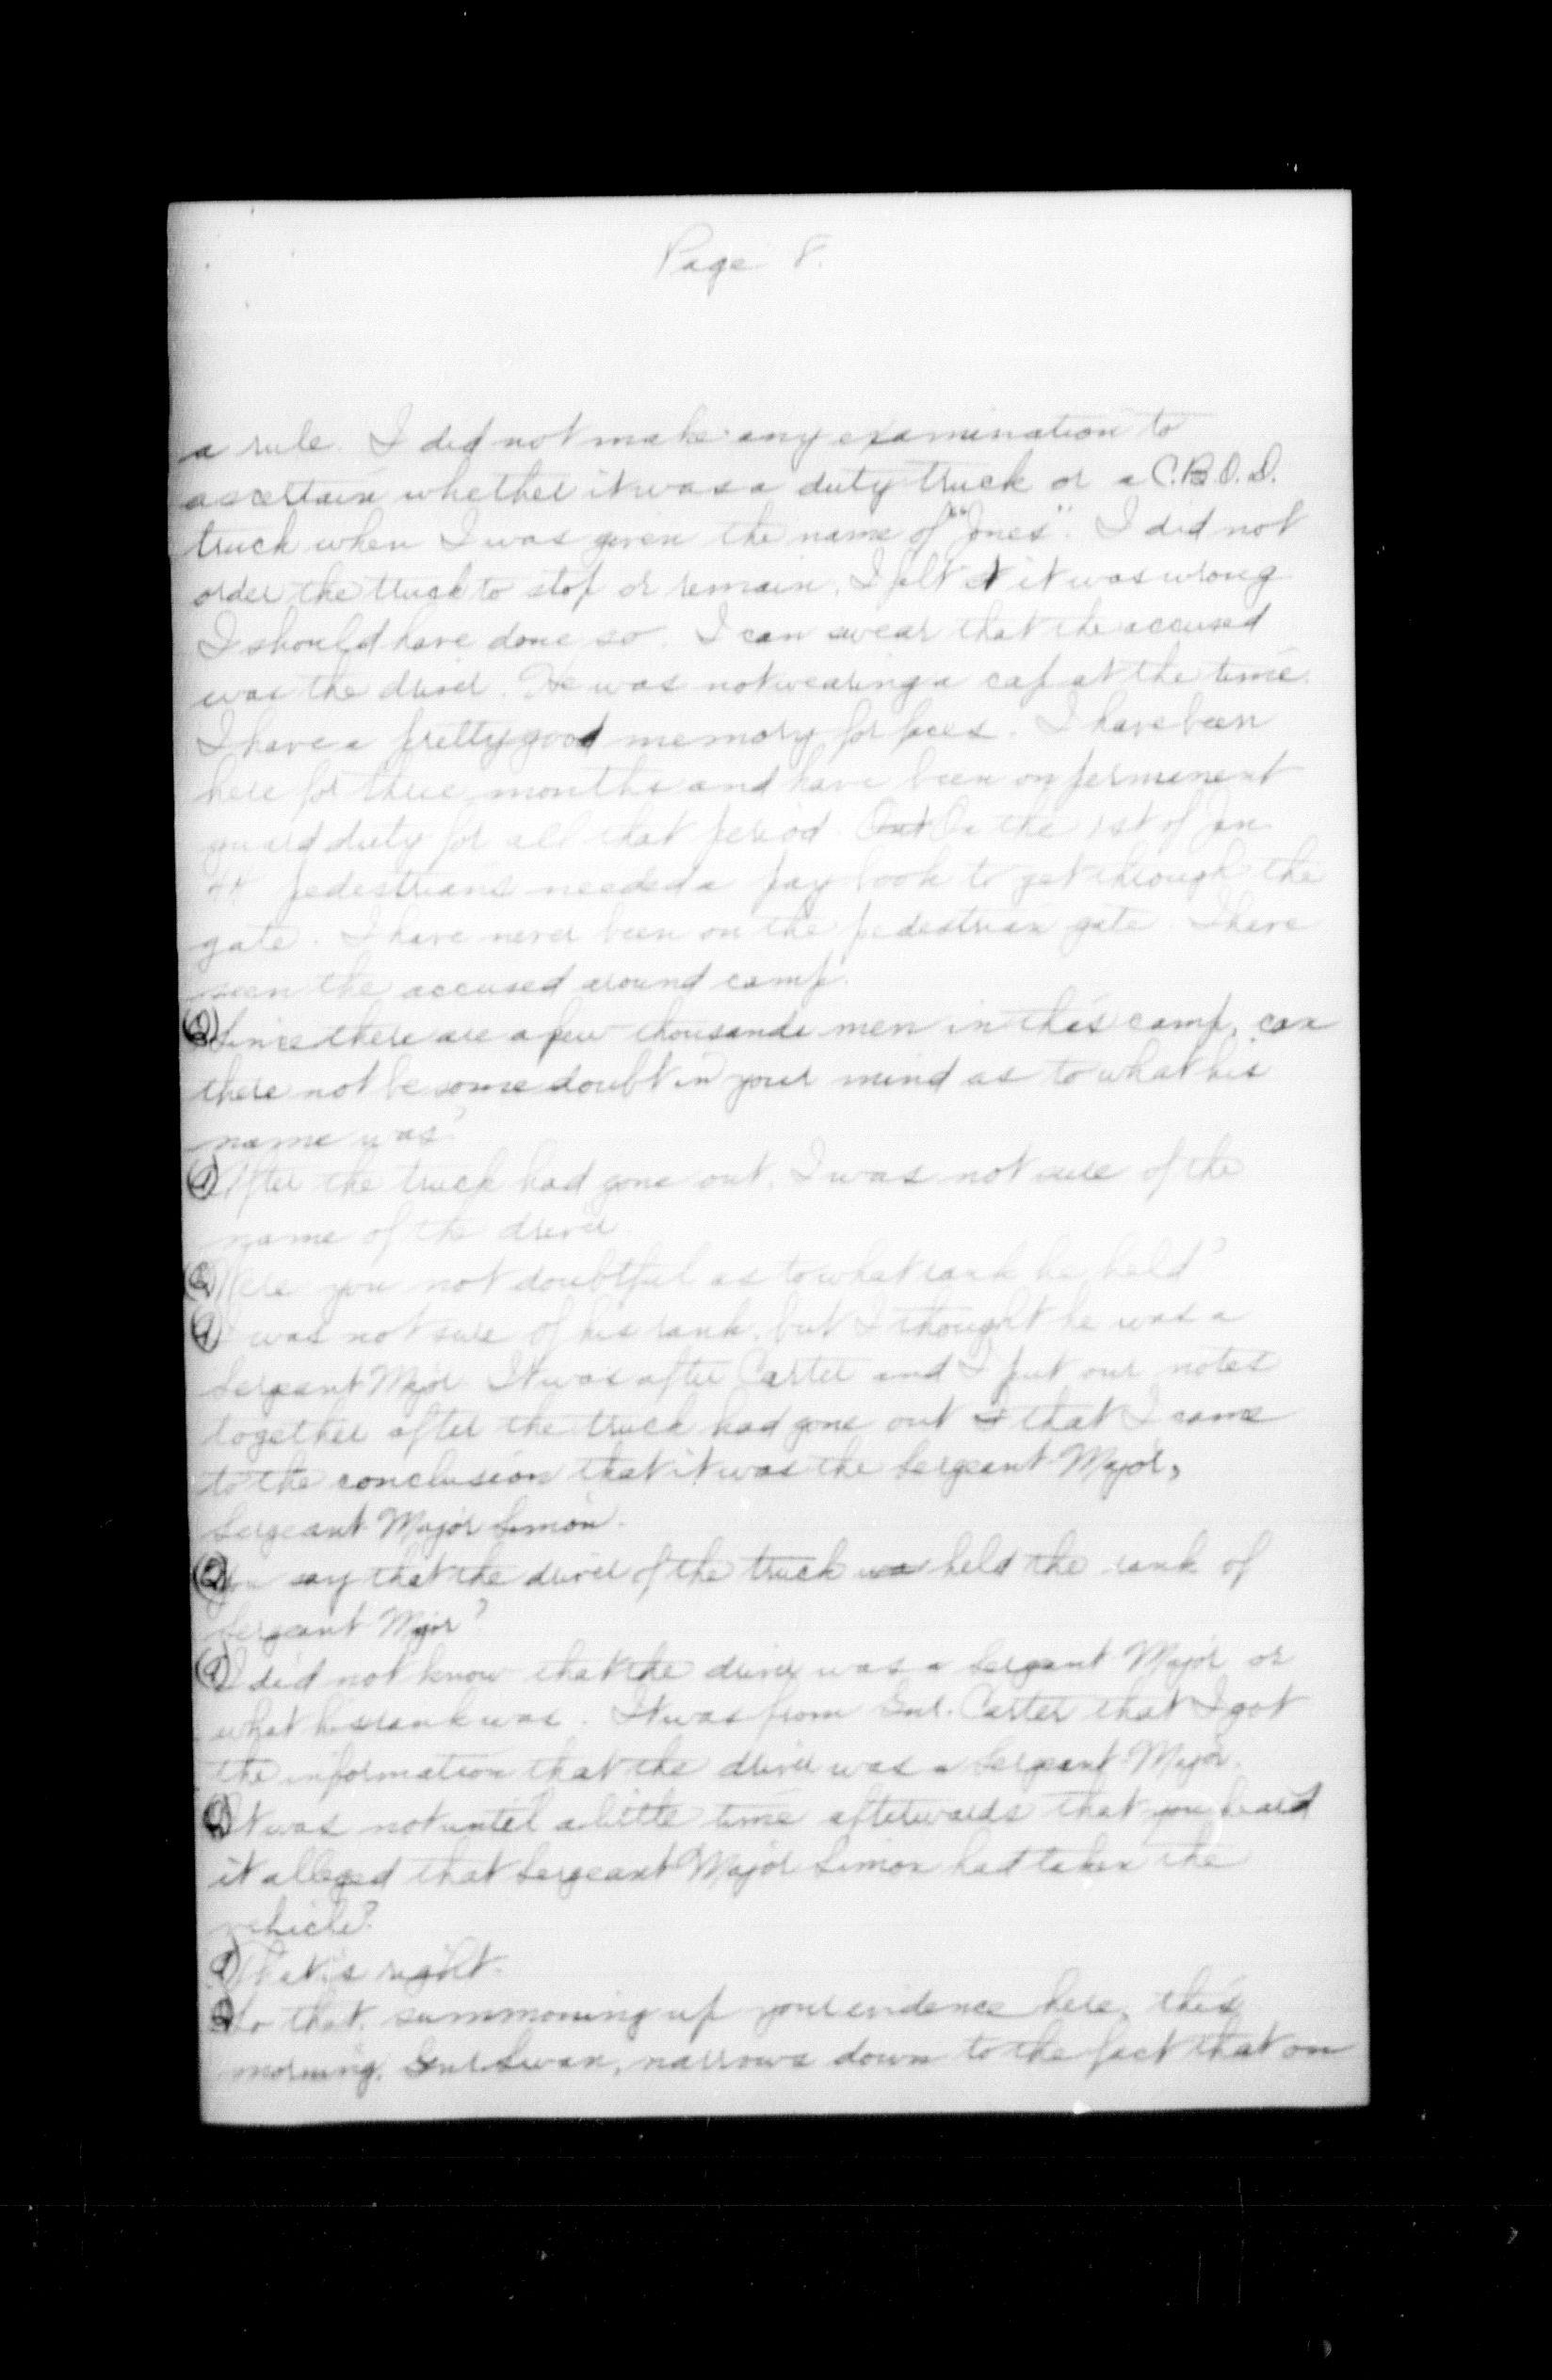 Page 8.
a rule. I did not make any examination to
ascertain whether it was a duty truck or a C.B.O.D.
truck when I was given the name of "Jones". I did not
order the truck to stop or remain. I felt it was wrong
I should have done so. I can swear that the accused
was the driver. He was not wearing a cap at the time.
I have a pretty good memory for faces. I have been
here for three months and have been on permenent
guard duty for all that period. On the 1st of Jan
44 pedestrians needed a pay book to get through the
gate. I have never been on the pedestrian gate. I have
seen the accused around camp.
Q Since there are a few thousands men in this camp, can
there not be some doubt in your mind as to what his
name was?
A After the truck had gone out, I was not sure of the
name of the driver.
Q Were you not doubtful as to what rank he held?
A I was not sure of his rank, but I thought he was a
Sergeant Major. It was after Carter and I put our notes
together after the truck had gone out that I came
to the conclusion that it was the Sergeant Major,
Sergeant Major Simon.
Q You say that the driver of the truck held the rank of
Sergeant Major?
A I did not know that the driver was a Sergeant Major or
what his rank was. It was from Gnr. Carter that I got
the information that the driver was a Sergeant-Major.
Q It was not until a little time afterwards that you heard
it alleged that Sergeant Major Simon had taken the
vehicle?
A That's right.
Q So that, summoning up your evidence here, this
morning, Gnr Swan, narrows down to the fact that on